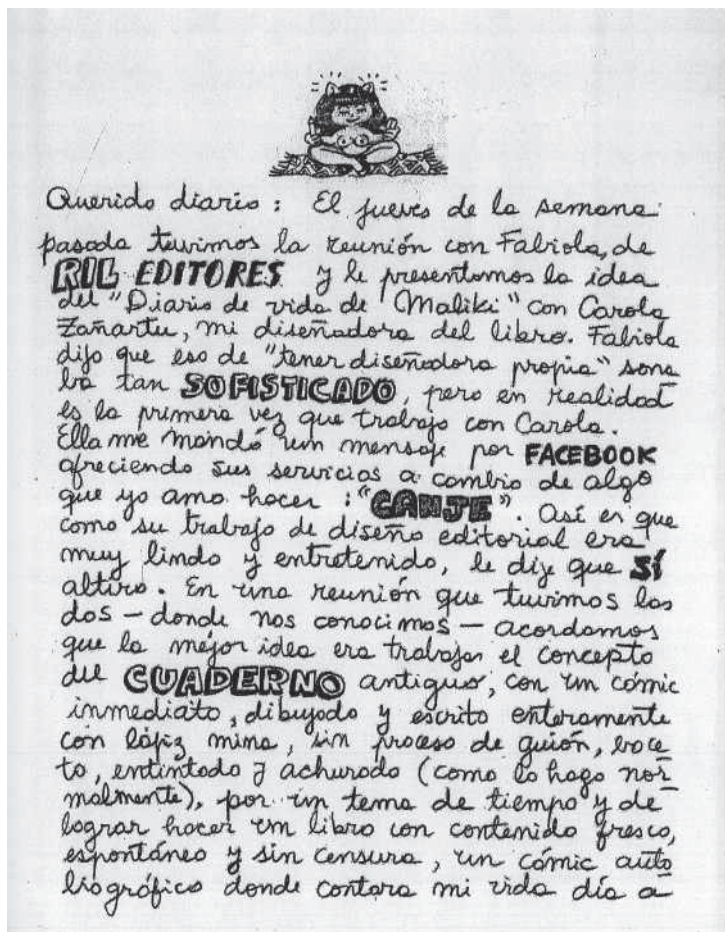 Querido diario: El jueves de la semana
pasada tuvimos la reunión con Fabiola, de
RIL EDITORES y le presentamos la idea
del "Diario de vida de Maliki" con Carola
Zañartu, mi diseñadora del libro. Fabiola
dijo que eso de "tener diseñadora propia" sona
ba tan SOFISTICADO, pero en realidad
es la primera vez que trabajo con Carola.
Ella me mandó un mensaje por FACEBOOK
ofreciendo sus servicios a cambio de algo
que yo amo hacer: "CANJE". Así es que
como su trabajo de diseño editorial era
muy lindo y entretenido, le dije que SÍ
altiro. En una reunión que tuvimos las
dos - donde nos conocimos - acordamos
que la mejor idea era trabajar el concepto
del CUADERNO antiguo, con un cómic
inmediato, dibujado y escrito enteramente
con lápiz mina, sin proceso de guión, boce
to, entintado y achurado (como lo hago nor
malmente), por un tema de tiempo y de
lograr hacer un libro con contenido fresco,
espontáneo y sin censura, un cómic auto
biográfico donde contara mi vida día a